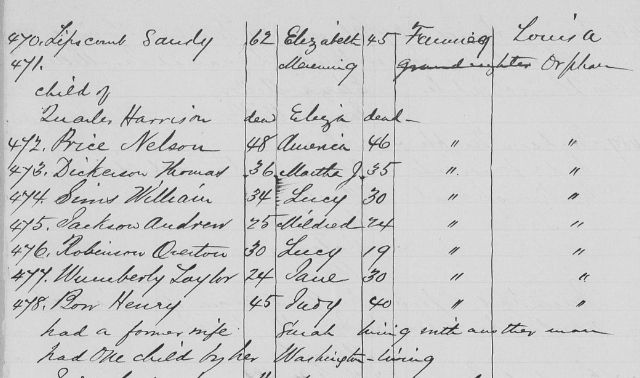 470. Lipscomb Sandy 62 Elizabeth 45 Farming Louisa
471. Meaning granddaughter Orphan
child of
Quarles Harrison dead Eliza dead -
472. Price Nelson 48 America 46 " "
473. Dickerson Thomas 36 Martha J. 35 " "
474. Sims William 34 Lucy 30 " "
475. Jackson Andrew 25 Mildred 24 " "
476. Robinson Overton 30 Lucy 19 " "
477. Wumberly Taylor 24 Jane 30 " "
478. Bow Henry 45 Judy 40 " "
had a former wife Sarah living with another man
had one child by her Washington - living